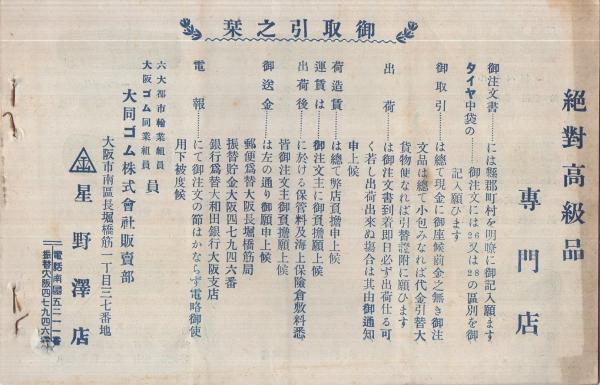 絕對高級品
專門店
御取引之栞
御注文書……には縣郡町村を明瞭に御記入願ます
タイヤ中袋の……御注文には26又は28の區別を御
記入願ひます
御取引……は總て現金に御座候前金之無き御注
文品は總て小包みなれば代金引替大
貨物便なれば引替證附に願ひます
出荷……は御注文書到着即日必ず出荷仕る可
く若し出荷出來ぬ場合は其由御通知
申上候
荷造賃……は總て弊店負擔申上候
運賃は……御注文主に御負擔願上候
出荷後……に於ける保管料及海上保險倉敷料悉
皆御注文主御負擔願上候
御送金……は左の通り御願申上候
郵便爲替大阪長堀橋筋局
振替貯金大阪四七九四六番
銀行爲替大和田銀行大阪支店
電報……にて御注文の節はかならず電略御使
用下被度候
六大都市輪業組員
大阪ゴム同業組員
員
大同ゴム株式會社販賣部
大阪市南區長堀橋筋一丁目三七番地
金 星野澤店
電話南五二一一番
振替大阪四七九四六番